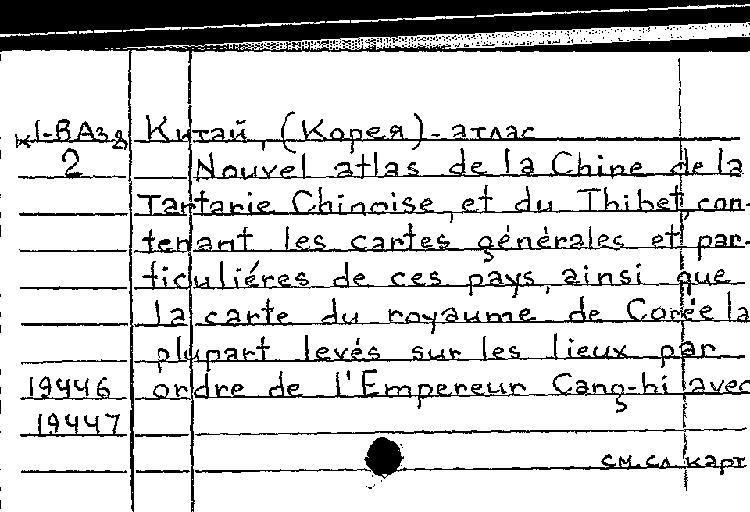 к1-ВАзд Китай, (Корея) - атлас
2 Nouvel atlas de la Chine de la
Tartarie Chinoise, et du Thibet, con-
tenant les cartes générales et par-
ticuliéres de ces pays, ainsi que
la carte du royaume de Corée la
plupart levés sur les lieux par
19446 ordre de l'Empereur Cang-hi avec
19447
см. сл. карт